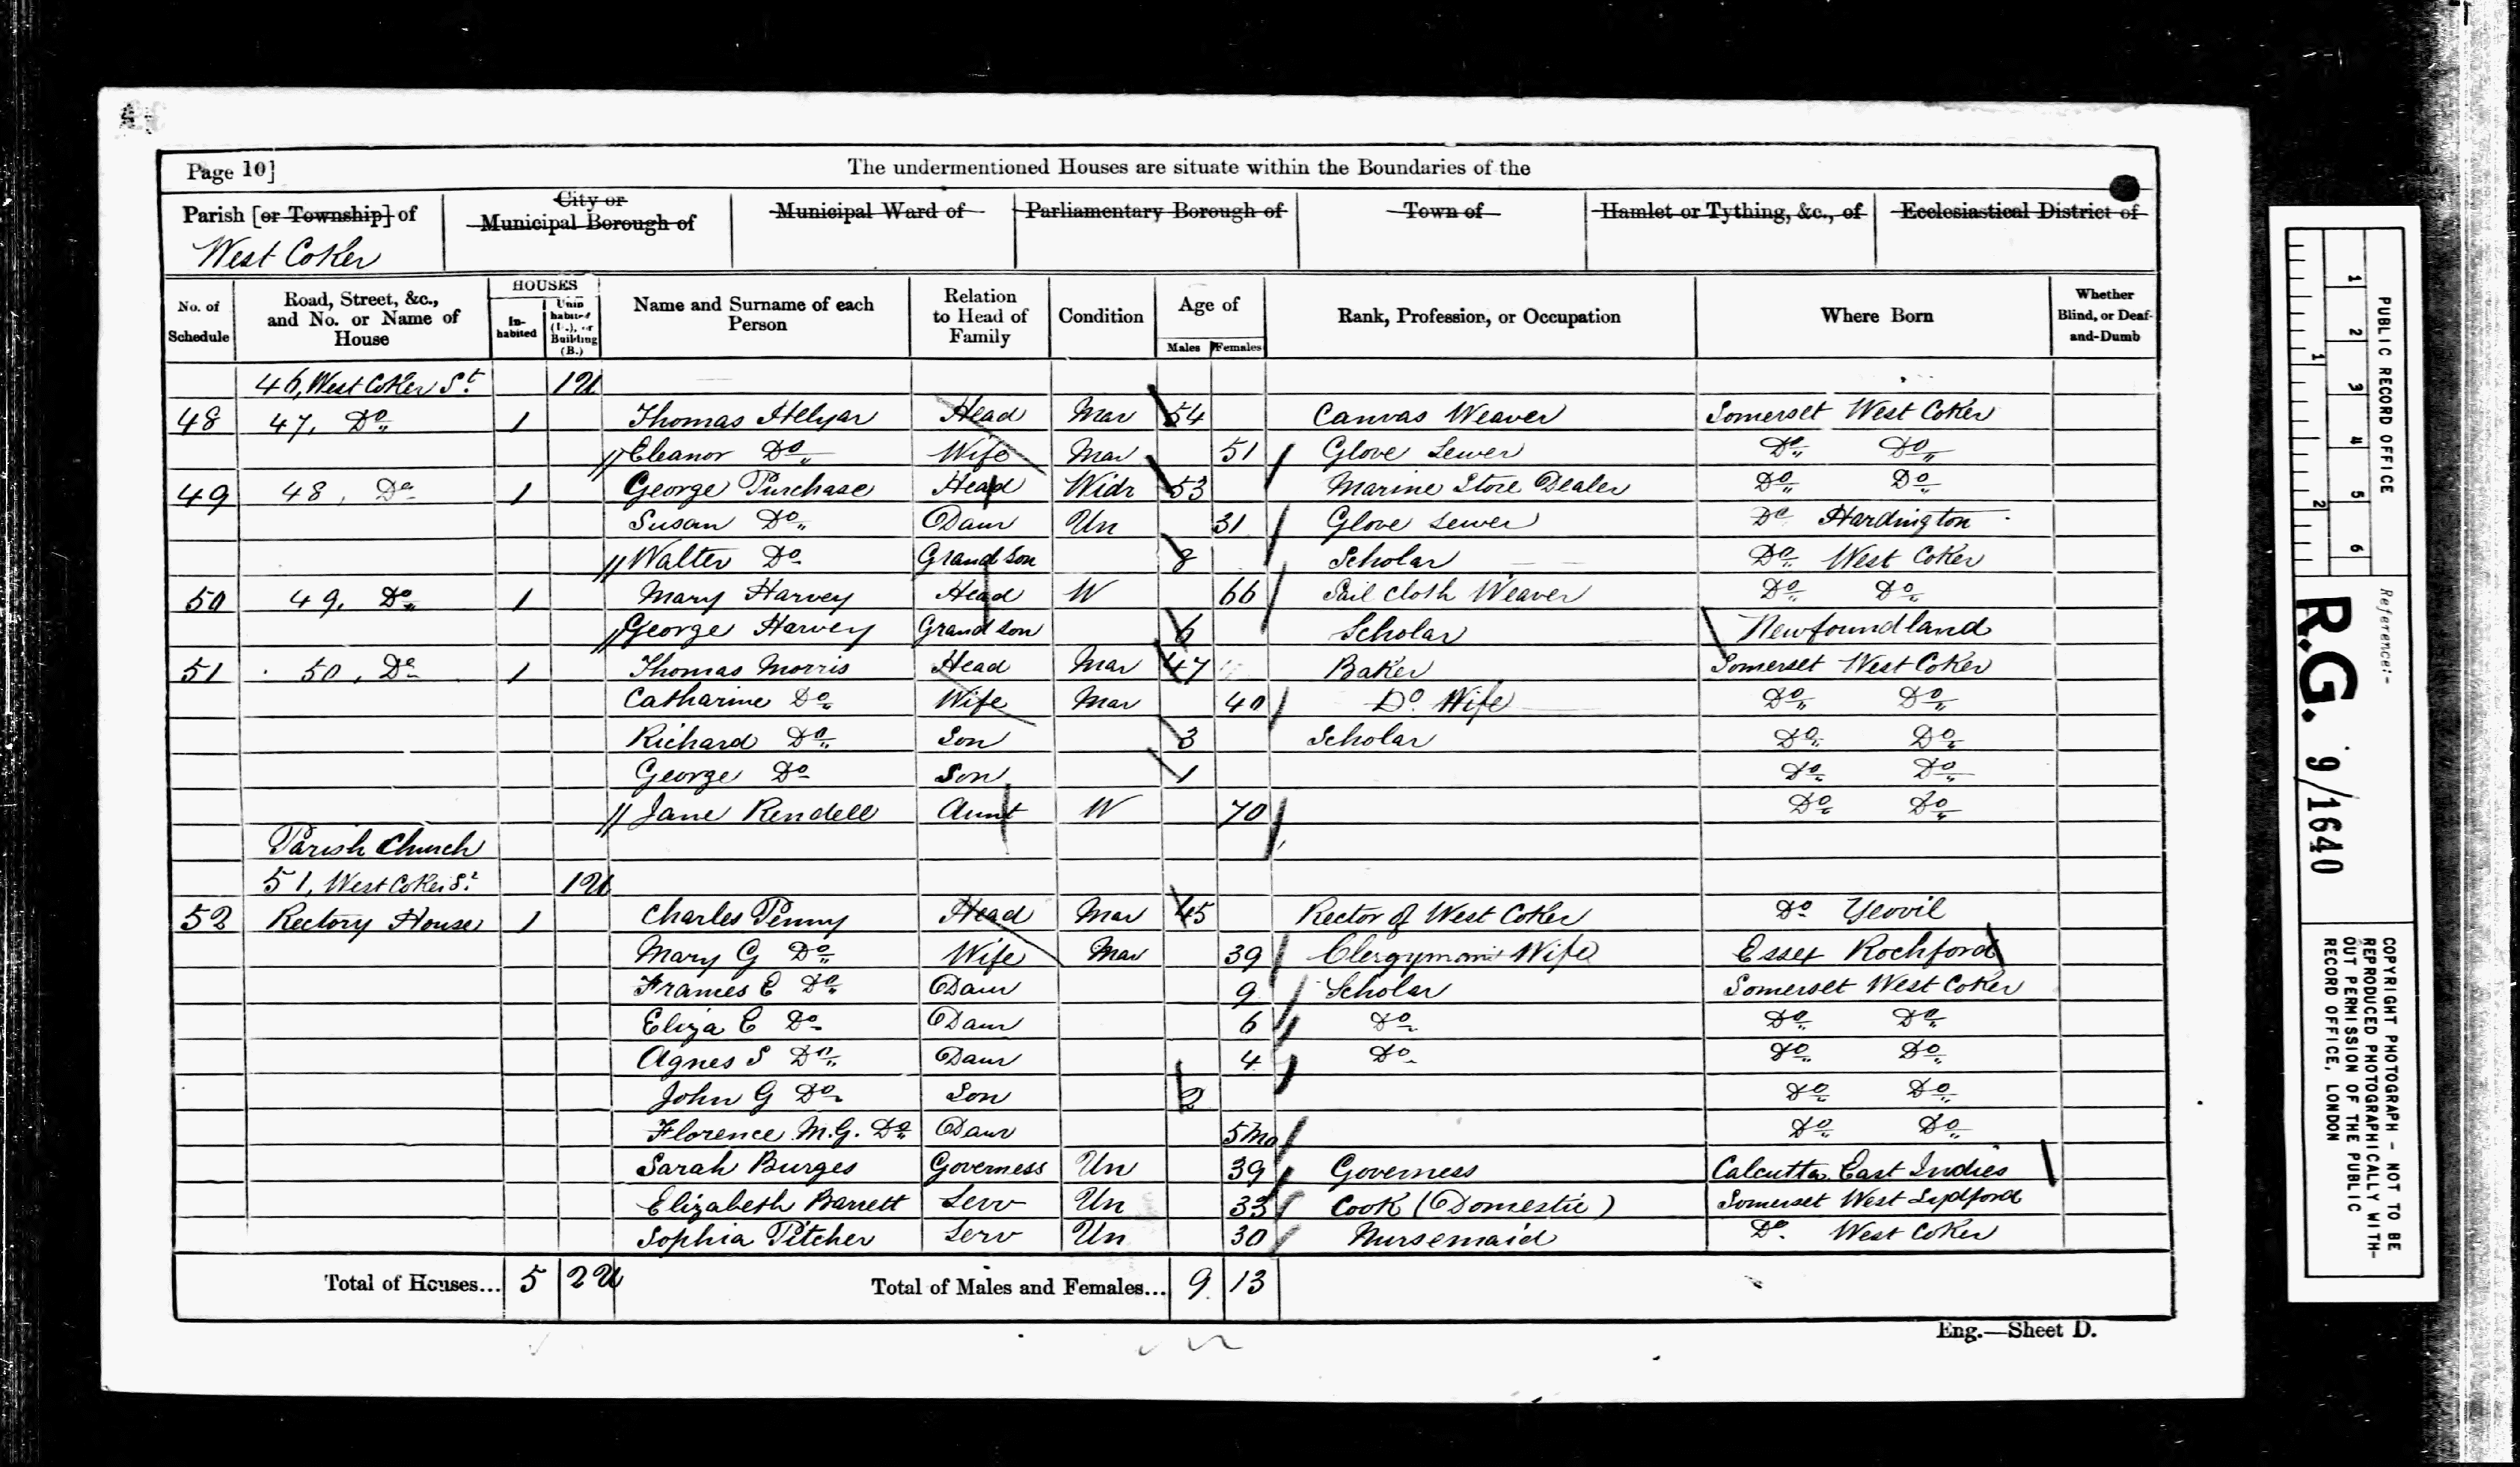 Page 10]
The undermentioned Houses are situate within the Boundaries of the
Parish [or Township] of
West Coker
City or Municipal Borough of
Municipal Ward of
Parliamentary Borough of
Town of
Hamlet or Tything, &c., of
Ecclesiastical District of
No. of Schedule
Road, Street, &c., and No. or Name of House
HOUSES
In-habited
Unin-habited (U.), or Building (B.)
Name and Surname of each Person
Relation to Head of Family
Condition
Age of
Males
Females
Rank, Profession, or Occupation
Where Born
Whether Blind, or Deaf-and-Dumb
46, West Coker St 1 U
48 47, Do 1 Thomas Helyar Head Mar 54 Canvas Weaver Somerset West Coker
Eleanor Do Wife Mar 51 Glove Sewer Do Do
49 48, Do 1 George Purchase Head Widr 53 Marine Store Dealer Do Do
Susan Do Daur Un 31 Glove Sewer Do Hardington
Walter Do Grand Son 8 Scholar Do West Coker
50 49, Do 1 Mary Harvey Head W 66 Sail Cloth Weaver Do Do
George Harvey Grand Son 6 Scholar Newfoundland
51 50, Do 1 Thomas Morris Head Mar 47 Baker Somerset West Coker
Catharine Do Wife Mar 40 Do Wife Do Do
Richard Do Son 3 Scholar Do Do
George Do Son 1 Do Do
Jane Rendell Aunt W 70 Do Do
Parish Church
51, West Coker St 1 U
52 Rectory House 1 Charles Penny Head Mar 45 Rector of West Coker Do Yeovil
Mary G Do Wife Mar 39 Clergymans Wife Essex Rochford
Frances E Do Daur 9 Scholar Somerset West Coker
Eliza C Do Daur 6 Do Do Do
Agnes S Do Daur 4 Do Do Do
John G Do Son 2 Do Do
Florence M.G. Do Daur 5 Mo Do Do
Sarah Burges Governess Un 39 Governess Calcutta East Indies
Elizabeth Barrett Serv Un 33 Cook (Domestic) Somerset West Lydford
Sophia Pitcher Serv Un 30 Nursemaid Do West Coker
Total of Houses... 5 2 U Total of Males and Females... 9 13
Eng.—Sheet D.
1 2
1 2 3 4 5 6
PUBLIC RECORD OFFICE
Reference:-
R.G. 9/1640
COPYRIGHT PHOTOGRAPH - NOT TO BE
REPRODUCED PHOTOGRAPHICALLY WITH-
OUT PERMISSION OF THE PUBLIC
RECORD OFFICE, LONDON